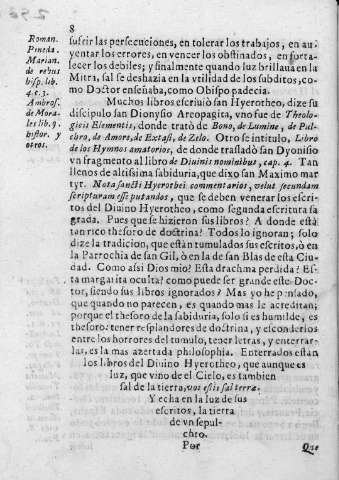 8
Roman.
Pineda.
Marian.
de rebus
hisp. lib.
4. c. 3.
Ambros.
de Mora-
les lib. 9.
histor. y
otros.
sufrir las persecuciones, en tolerar los trabajos, en au-
yentar los errores, en vencer los obstinados, en forta-
lecer los debiles; y finalmente quando luz brillaua en la
Mitra, sal se deshazia en la vtilidad de los subditos, co-
mo Doctor enseñaba, como Obispo padecia.
Muchos libros escriuiò san Hyerotheo, dize su
discipulo san Dionysio Areopagita, vno fue de Theolo-
gicis Elementis, donde tratò de Bono, de Lumine, de Pul-
chro, de Amore, de Extasi, de Zelo. Otro se intitulò, Libro
de los Hymnos amatorios, de donde trasladò san Dyonisio
vn fragmento al libro de Diuinis nominibus, cap. 4. Tan
llenos de altissima sabiduria, que dixo san Maximo mar
tyr. Nota sancti Hyerothei commentarios, velut secundam
scripturam esse putandos, que se deben venerar los escri-
tos del Diuino Hyerotheo, como segunda escritura sa
grada. Pues que se hizieron sus libros? A donde està
tan rico thesoro de doctrina? Todos lo ignoran; solo
dize la tradicion, que estàn tumulados sus escritos, ò en
la Parrochia de san Gil, ò en la de san Blas de esta Ciu-
dad. Como assi Dios mio? Esta drachma perdida? Es-
ta margarita oculta? como puede ser grande este Doc-
tor, siendo sus libros ignorados? Mas yo he pensado,
que quando no parecen, es quando mas le acreditan;
porque el thesoro de la sabiduria, solo si es humilde, es
thesoro: tener resplandores de doctrina, y esconderlos
entre los horrores del tumulo, tener letras, y enterrar-
las, es la mas azertada philosophia. Enterrados estàn
los libros del Diuino Hyerotheo, que aunque es
luz, que vino de el Cielo, es tambien
sal de la tierra, vos estis sal terræ.
Y echa en la luz de sus
escritos, la tierra
de vn sepul-
chro.
Por Que